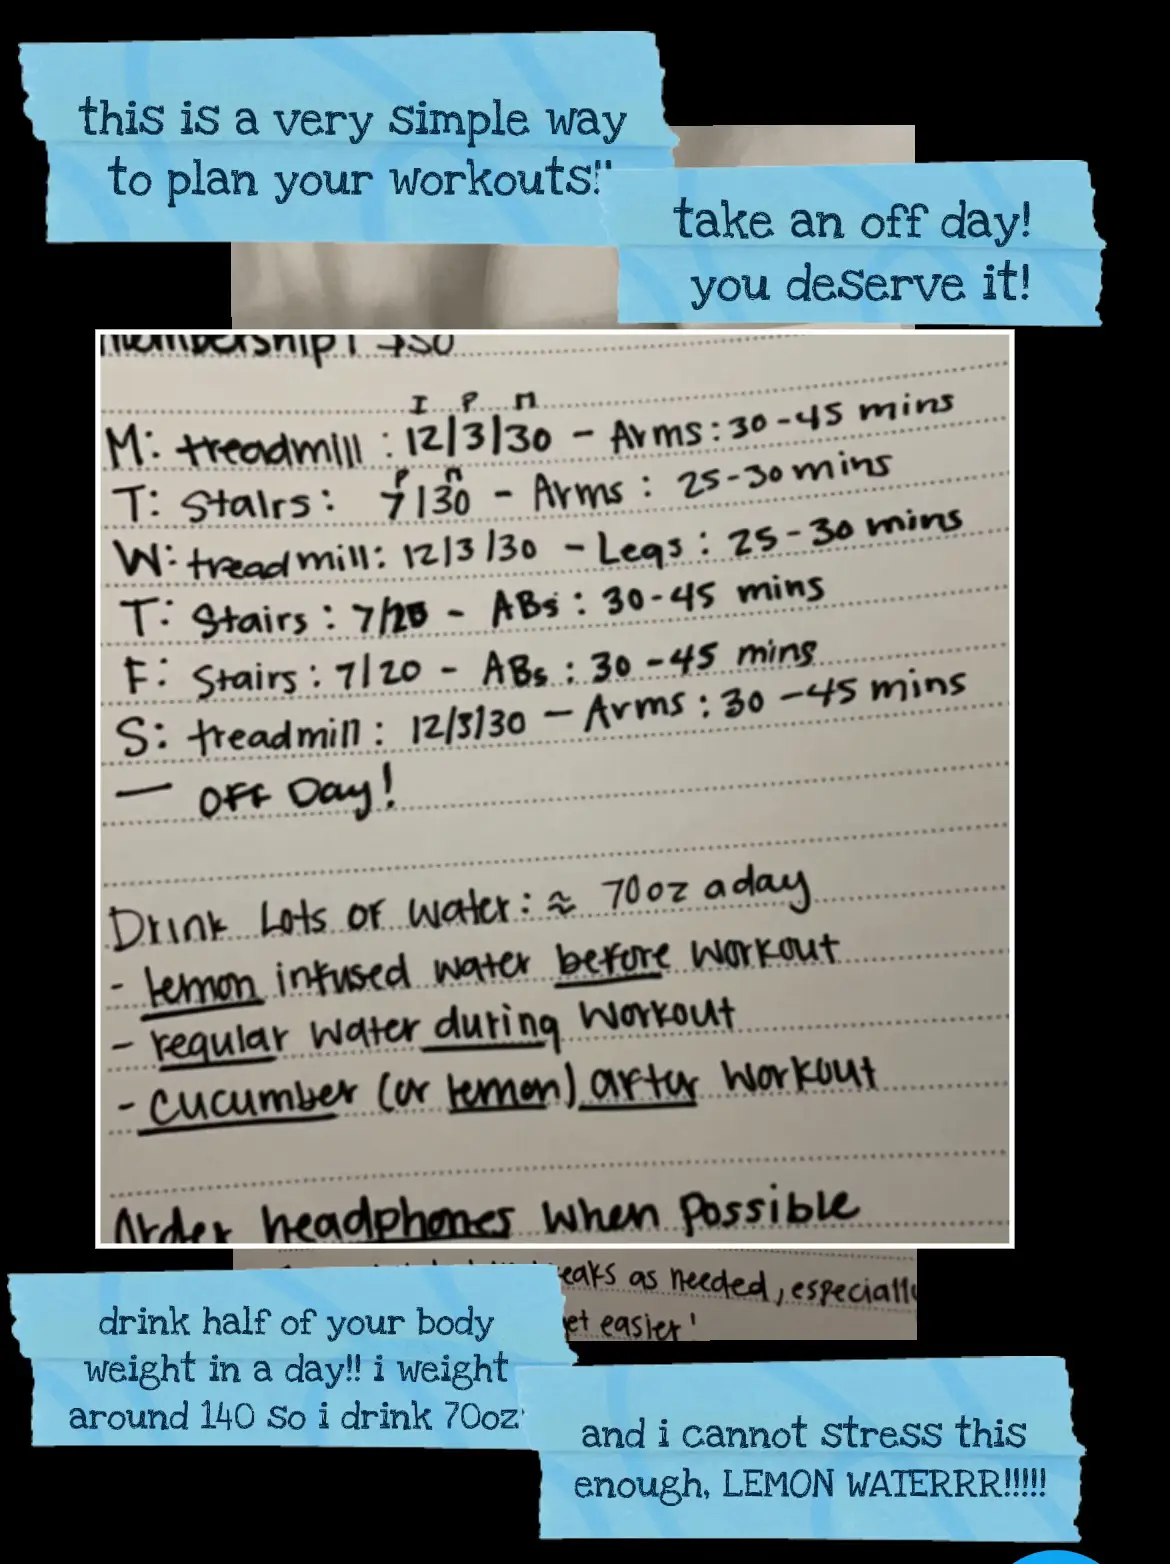 this is a very simple way
to plan your workouts!!
take an off day!
you deserve it!
membership: $30
I P M
M: treadmill: 12/3/30 - Arms: 30-45 mins
P M
T: Stairs: 7/30 - Arms: 25-30 mins
W: treadmill: 12/3/30 - Legs: 25-30 mins
T: Stairs: 7/20 - ABs: 30-45 mins
F: Stairs: 7/20 - ABs: 30-45 mins
S: treadmill: 12/3/30 - Arms: 30-45 mins
— OFF Day!
Drink Lots of water: ≈ 70oz a day
- lemon infused water before workout
- regular water during workout
- cucumber (or lemon) after workout
Order headphones when possible
as needed, especially
easier!
drink half of your body
weight in a day!! i weight
around 140 so i drink 70oz
and i cannot stress this
enough, LEMON WATERRR!!!!!